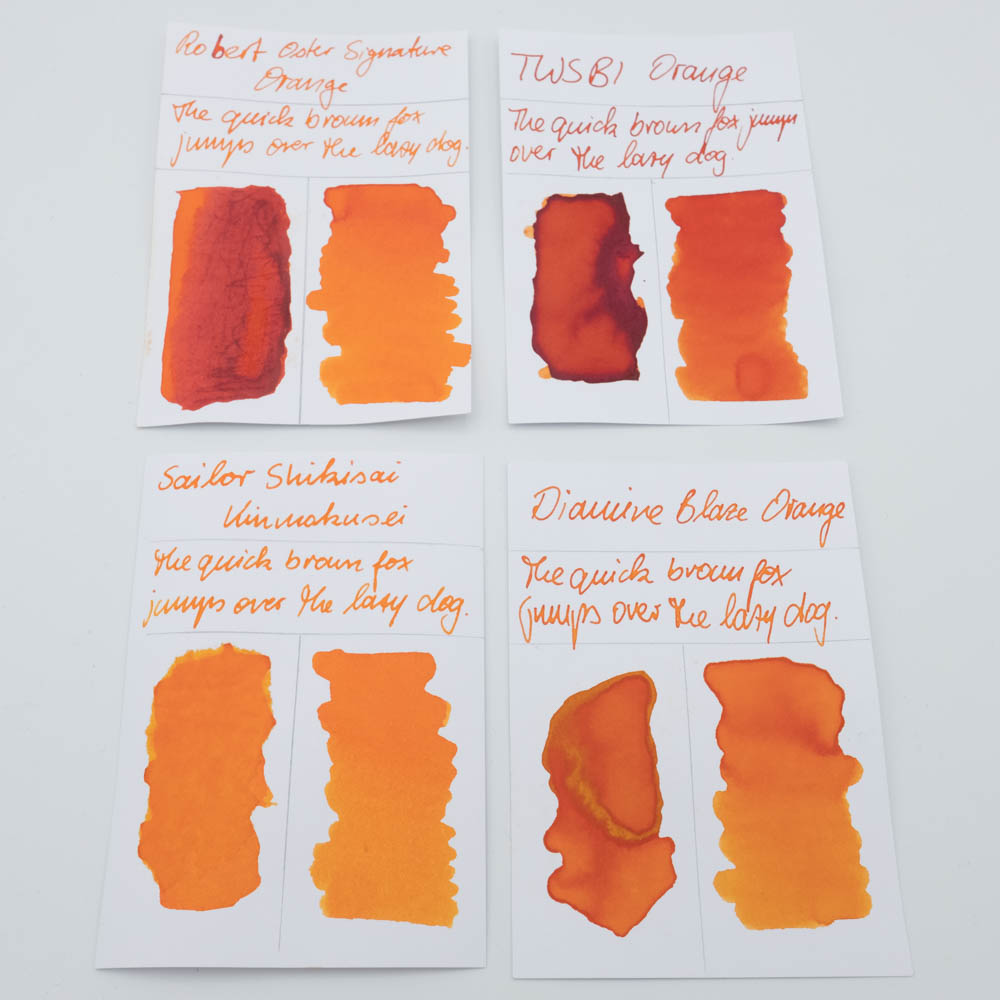 Robert Oster Signature
Orange
The quick brown fox
jumps over the lazy dog.
TWSBI Orange
The quick brown fox jumps
over the lazy dog.
Sailor Shikisai
Kinmokusei
The quick brown fox
jumps over the lazy dog.
Diamine Blaze Orange
The quick brown fox
jumps over the lazy dog.